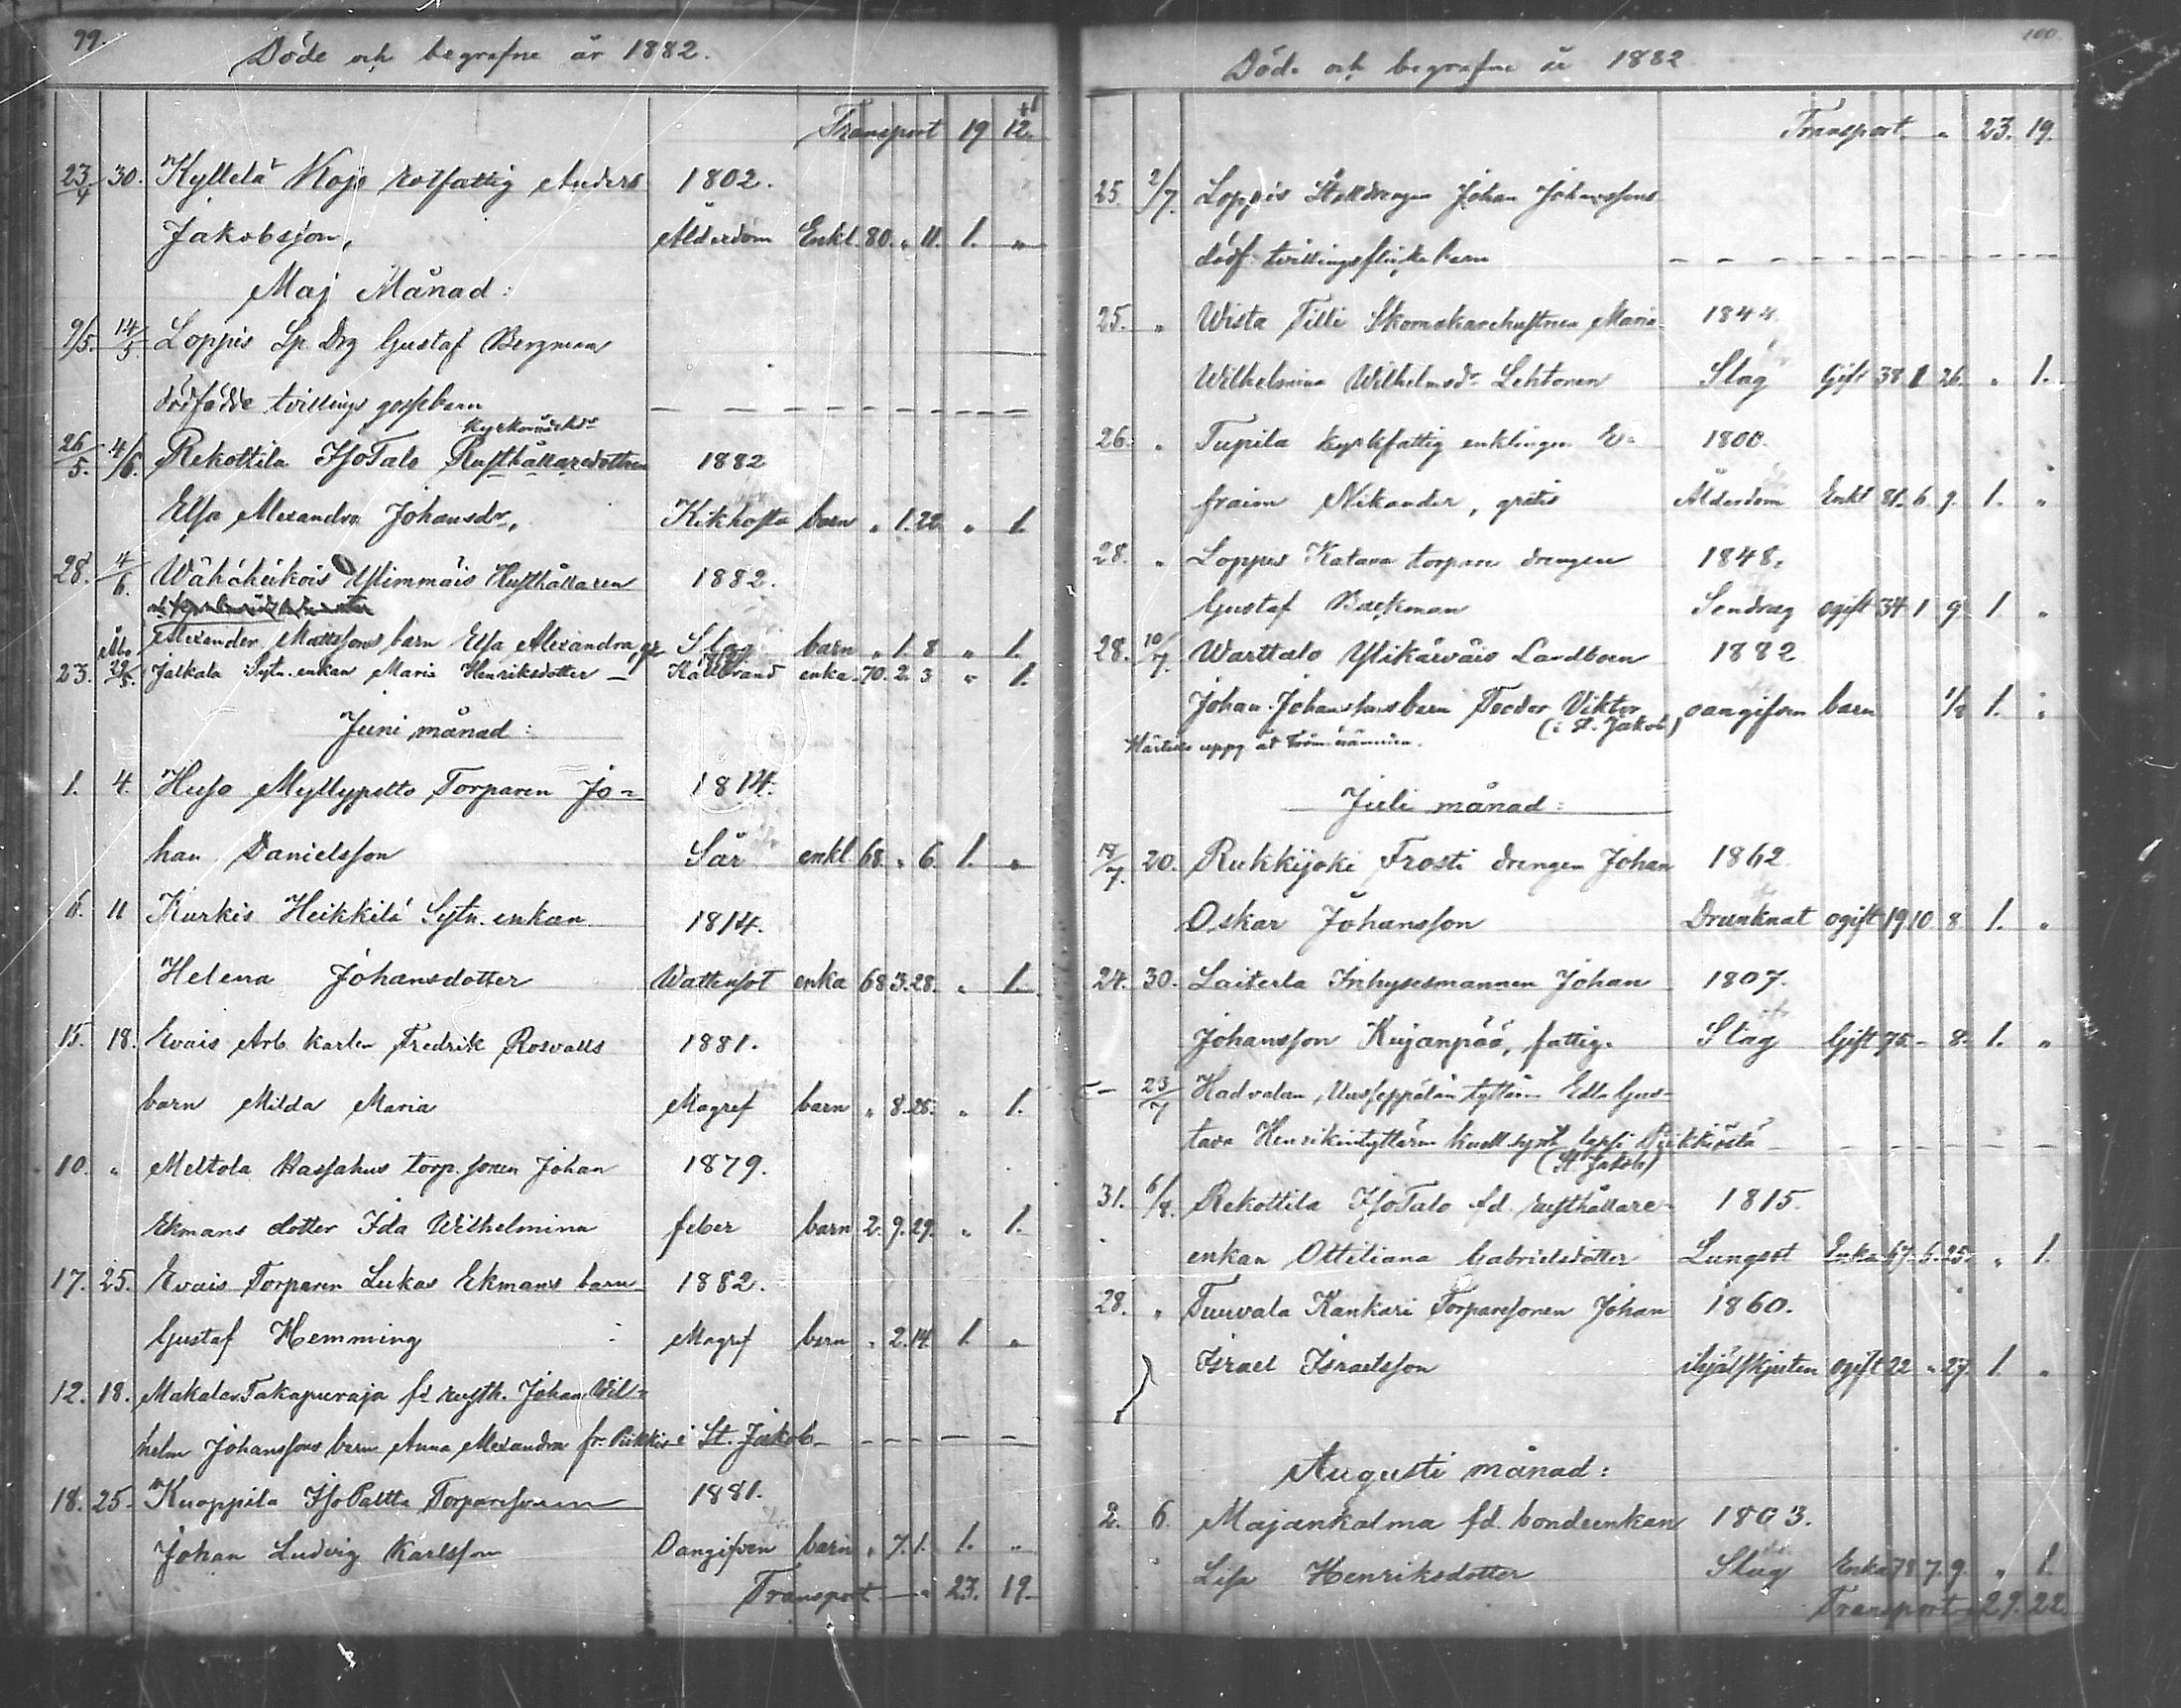 99.
Döde och begrafne år 1882.
Transport 19 12.
23/4 30. Kyllelä Kojo rotfattig Anders 1802.
Jakobsson, Ålderdom Enkl. 80. „ 11. 1. „
Maj Månad:
9/5. 14/5. Loppis Sp. Drg Gustaf Bergmans
dödfödde tvillings gossebarn
kyrkovärds
26/5. 4/6. Rekottila IsoTalo Rusthållaredottren 1882
Elsa Alexandra Johansdr, Kikhosta barn „ 1. 22. „ 1.
28. 4/6. Wähäheikois Ylimmäis Rusthållaren 1882.
Alexander Mattssons barn Elsa Alexandra, Slag barn „ 1. 8 „ 1.
23. 29/5. Jalkala Sytn. enkan Maria Henriksdotter – Kallbrand enka 70. 2. 3 „ 1.
Juni månad:
1. 4. Huso Myllypelto Torparen Jo= 1814.
han Danielsson Sår enkl 68. „ 6. 1. „
6. 11 Kurkis Heikkilä Sytn. enkan 1814.
Helena Johansdotter Wattusot enka 68 3. 28. „ 1.
15. 18. Evais Arb. karlen Fredrik Rosvalls 1881.
barn Milda Maria Magref barn „ 8. 28. „ 1.
10. „ Meltola Hassahus torp. sonen Johan 1879.
Ekmans dotter Ida Wilhelmina feber barn 2. 9. 29. „ 1.
17. 25. Evais Torparen Lukas Ekmans barn 1882.
Gustaf Hemming Magref barn „ 2. 14. 1. „
12. 18. Makala Takapuraja fd rusth. Johan Wil=
helm Johanssons barn Anna Alexandra fr. Pikkis i St. Jakob
18. 25. Kuoppila Iso Paltta Torparesonen 1881.
Johan Ludvig Karlsson Oangifven barn „ 7. 1. 1. „
Transport – „ 23. 19.
100.
Döde och begrafne år 1882
Transport „ 23. 19.
25. 2/7. Loppis Stalldrengen Johan Johanssons
dödf. tvillingsflickebarn
25. „ Wista Tilli Skomakarehustrun Maria 1844.
Wilhelmina Wilhelmsdr Lehtonen Slag Gift 38. 1 26. „ 1.
26. „ Tupila kyrkfattig enklingen E= 1800.
fraim Nikander, gratis Ålderdom Enkl 81. 6. 9. 1. „
28. „ Loppis Katava torpare drengen 1848.
Gustaf Backman Sendrag ogift 34 1 9 1. „
28. 10/7. Warttalo Ylikärväis Landboen 1882
Johan Johanssons barn Feodor Viktor oangifven barn 1/2 1. „
(i St. Jakob)
Juli månad:
18/7. 20. Rukkijoki Frosti drengen Johan 1862
Oskar Johansson Drunknat ogift 19 10 8. 1. „
24. 30. Laiterla Inhysesmannen Johan 1807.
Johansson Kujanpää, fattig. Slag Gift 75 – 8. 1. „
23/7 Hadvalan, Uusseppälän tyttären Edla Gus=
tava Henrikintyttären kuoll. synt. lapsi Piikkiöstä
(St. Jakob)
31. 6/8. Rekottila IsoTalo fd. rusthållare- 1815.
enkan Ottiliana Gabrielsdotter Lungsot Enka 67. 5. 25. „ 1.
28. „ Tuuvala Kankari Torparesonen Johan 1860.
Israel Israelsson ihjälskjuten ogift 22 „ 27. 1. „
Augusti månad:
2. 6. Majankalma fd. bondeenkan 1803.
Lisa Henriksdotter Slag Enka 78 7. 9. „ 1.
Transport 29. 22.